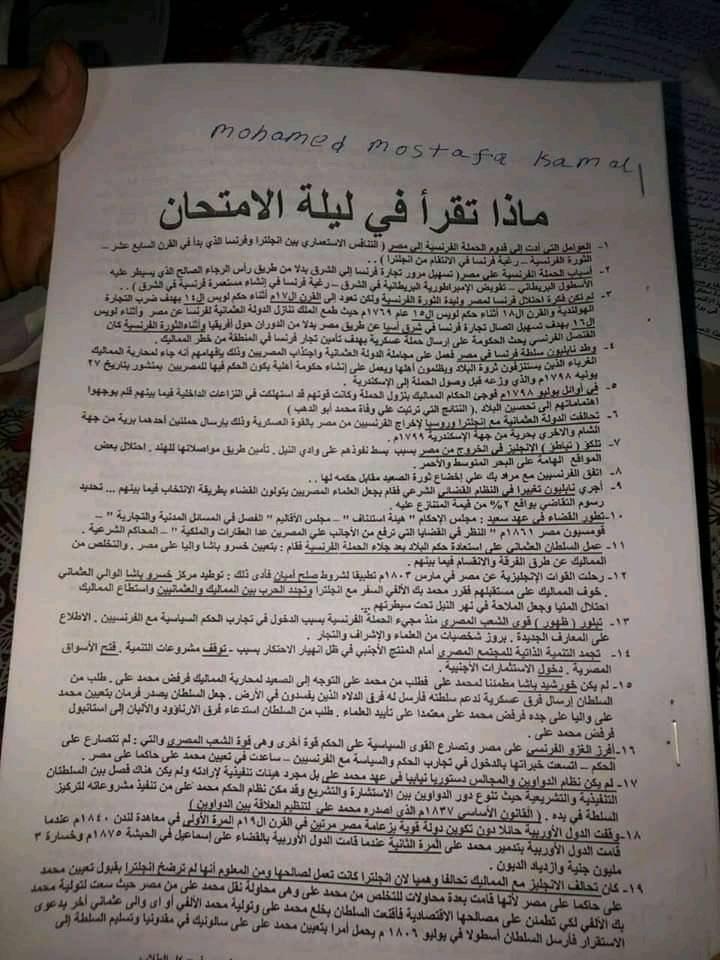 mohamed mostafa Kamal
ماذا تقرأ في ليلة الامتحان
١- العوامل التي أدت إلى قدوم الحملة الفرنسية إلى مصر ( التنافس الاستعماري بين انجلترا وفرنسا الذي بدأ في القرن السابع عشر –
الثورة الفرنسية – رغبة فرنسا في الانتقام من انجلترا ) . .
٢- أسباب الحملة الفرنسية علي مصر( تسهيل مرور تجارة فرنسا إلى الشرق بدلا من طريق رأس الرجاء الصالح الذي يسيطر عليه
الأسطول البريطاني – تقويض الإمبراطورية البريطانية في الشرق – رغبة فرنسا في إنشاء مستعمرة فرنسية في الشرق ) . .
٣- لم تكن فكرة احتلال فرنسا لمصر وليدة الثورة الفرنسية ولكن تعود إلى القرن ال١٧م أثناء حكم لويس ال١٤ بهدف ضرب التجارة
الهولندية والقرن ال١٨ أثناء حكم لويس ال١٥ عام ١٧٦٩م حيث طمع الملك تنازل الدولة العثمانية لفرنسا عن مصر وأثناء لويس
ال١٦ بهدف تسهيل اتصال تجارة فرنسا في شرق آسيا عن طريق مصر بدلا من الدوران حول أفريقيا وأثناءالثورة الفرنسية كان
القنصل الفرنسي يحث الحكومة على إرسال حملة عسكرية بهدف تأمين تجار فرنسا في المنطقة من خطر المماليك .
٤- وطد نابليون سلطة فرنسا في مصر فعمل على مجاملة الدولة العثمانية واجتذاب المصريين وذلك بإفهامهم أنه جاء لمحاربة المماليك
الغرباء الذين يستنزفون ثروة البلاد ويظلمون أهلها ويعمل على إنشاء حكومة أهلية يكون الحكم فيها للمصريين بمنشور بتاريخ ٢٧
يونيه ١٧٩٨م والذي وزعه قبل وصول الحملة إلى الإسكندرية .
٥- في أوائل يوليو ١٧٩٨م فوجئ الحكام المماليك بنزول الحملة وكانت قوتهم قد استهلكت في النزاعات الداخلية فيما بينهم فلم يوجهوا
اهتماماتهم إلى تحصين البلاد . ( النتائج التي ترتبت علي وفاة محمد أبو الدهب )
٦- تحالفت الدولة العثمانية مع إنجلترا وروسيا لإخراج الفرنسيين من مصر بالقوة العسكرية وذلك بإرسال حملتين أحدهما برية من جهة
الشام والاخري بحرية من جهة الإسكندرية ١٧٩٩م .
٧- تلكؤ ( تباطؤ ) الانجليز في الخروج من مصر بسبب بسط نفوذهم على وادي النيل . تأمين طريق مواصلاتها للهند . احتلال بعض
المواقع الهامة على البحر المتوسط والأحمر .
٨- اتفق الفرنسيين مع مراد بك علي إخضاع ثورة الصعيد مقابل حكمه لها . .
٩- أجري نابليون تغييرا في النظام القضائي الشرعي فقام بجعل العلماء المصريين يتولون القضاء بطريقة الانتخاب فيما بينهم ... تحديد
رسوم التقاضي بواقع ٢% من قيمة المتنازع عليه .
١٠- تطور القضاء في عهد سعيد : مجلس الإحكام " هيئة استئناف " – مجلس الأقاليم " الفصل في المسائل المدنية والتجارية –
قومسيون مصر ١٨٦١م " النظر في القضايا التي ترفع من الأجانب علي المصريين عدا العقارات والملكية " – المحاكم الشرعية .
١١- عمل السلطان العثماني على استعادة حكم البلاد بعد جلاء الحملة الفرنسية فقام : بتعيين خسرو باشا واليا على مصر . والتخلص من
المماليك عن طريق الفرقة والانقسام فيما بينهم .
١٢- رحلت القوات الإنجليزية عن مصر في مارس ١٨٠٣م تطبيقا لشروط صلح أميان فأدى ذلك : توطيد مركز خسرو باشا الوالي العثماني
. خوف المماليك على مستقبلهم فقرر محمد بك الألفي السفر مع انجلترا وتجدد الحرب بين المماليك والعثمانيين واستطاع المماليك
احتلال المنيا وجعل الملاحة في نهر النيل تحت سيطرتهم ...
١٣- تبلور ( ظهور ) قوى الشعب المصري منذ مجيء الحملة الفرنسية بسبب الدخول في تجارب الحكم السياسية مع الفرنسيين . الاطلاع
على المعارف الجديدة . بروز شخصيات من العلماء والإشراف والتجار .
١٤- تجمد التنمية الذاتية للمجتمع المصري أمام المنتج الأجنبي في ظل انهيار الاحتكار بسبب - توقف مشروعات التنمية . فتح الأسواق
المصرية . دخول الاستثمارات الأجنبية .
١٥- لم يكن خورشيد باشا مطمئنا لمحمد على فطلب من محمد على التوجه إلى الصعيد لمحاربة المماليك فرفض محمد على . طلب من
السلطان إرسال فرق عسكرية تدعم سلطته فأرسل له فرق الدلاه الذين يفسدون في الأرض . جعل السلطان يصدر فرمان بتعيين محمد
على واليا على جده فرفض محمد على معتمدا على تأييد العلماء . طلب من السلطان استدعاء فرق الارناؤود والألبان إلى استانبول
فرفض محمد على .
١٦- أفرز الغزو الفرنسي على مصر وتصارع القوى السياسية على الحكم قوة أخرى وهى قوة الشعب المصري والتي : لم تتصارع على
الحكم – اتسعت خبراتها بالدخول في تجارب الحكم والسياسة مع الفرنسيين – ساعدت في تعيين محمد على حاكما على مصر .
١٧- لم يكن نظام الدواوين والمجالس دستوريا نيابيا في عهد محمد على بل مجرد هيئات تنفيذية لإرادته ولم يكن هناك فصل بين السلطتان
التنفيذية والتشريعية حيث تنوع دور الدواوين بين الاستشارة والتشريع وقد مكن نظام الحكم محمد على من تنفيذ مشروعاته لتركيز
السلطة في يده . ( القانون الأساسي ١٨٣٧م الذي اصدره محمد على لتنظيم العلاقة بين الدواوين )
١٨- وقفت الدول الأوربية حائلا دون تكوين دولة قوية بزعامة مصر مرتين في القرن ال١٩م المرة الأولى في معاهدة لندن ١٨٤٠م عندما
قامت الدول الأوربية بتدمير محمد على المرة الثانية عندما قامت الدول الأوربية بالقضاء على إسماعيل في الحبشة ١٨٧٥م وخسارة ٣
مليون جنية وازدياد الديون .
١٩- كان تحالف الانجليز مع المماليك تحالفا وهميا لان انجلترا كانت تعمل لصالحها ومن المعلوم أنها لم ترضخ انجلترا بقبول تعيين محمد
على حاكما على مصر لأنها قامت بعدة محاولات للتخلص من محمد على وهى محاولة نقل محمد على من مصر حيث سعت لتولية محمد
بك الألفي لكي تطمئن على مصالحها الاقتصادية فأقنعت السلطان بخلع محمد على وتولية محمد الألفي أو اى والى عثماني أخر بدعوى
الاستقرار فأرسل السلطان أسطولا في يوليو ١٨٠٦م يحمل أمرا بتعيين محمد على على سالونيك في مقدونيا وتسليم السلطة إلى